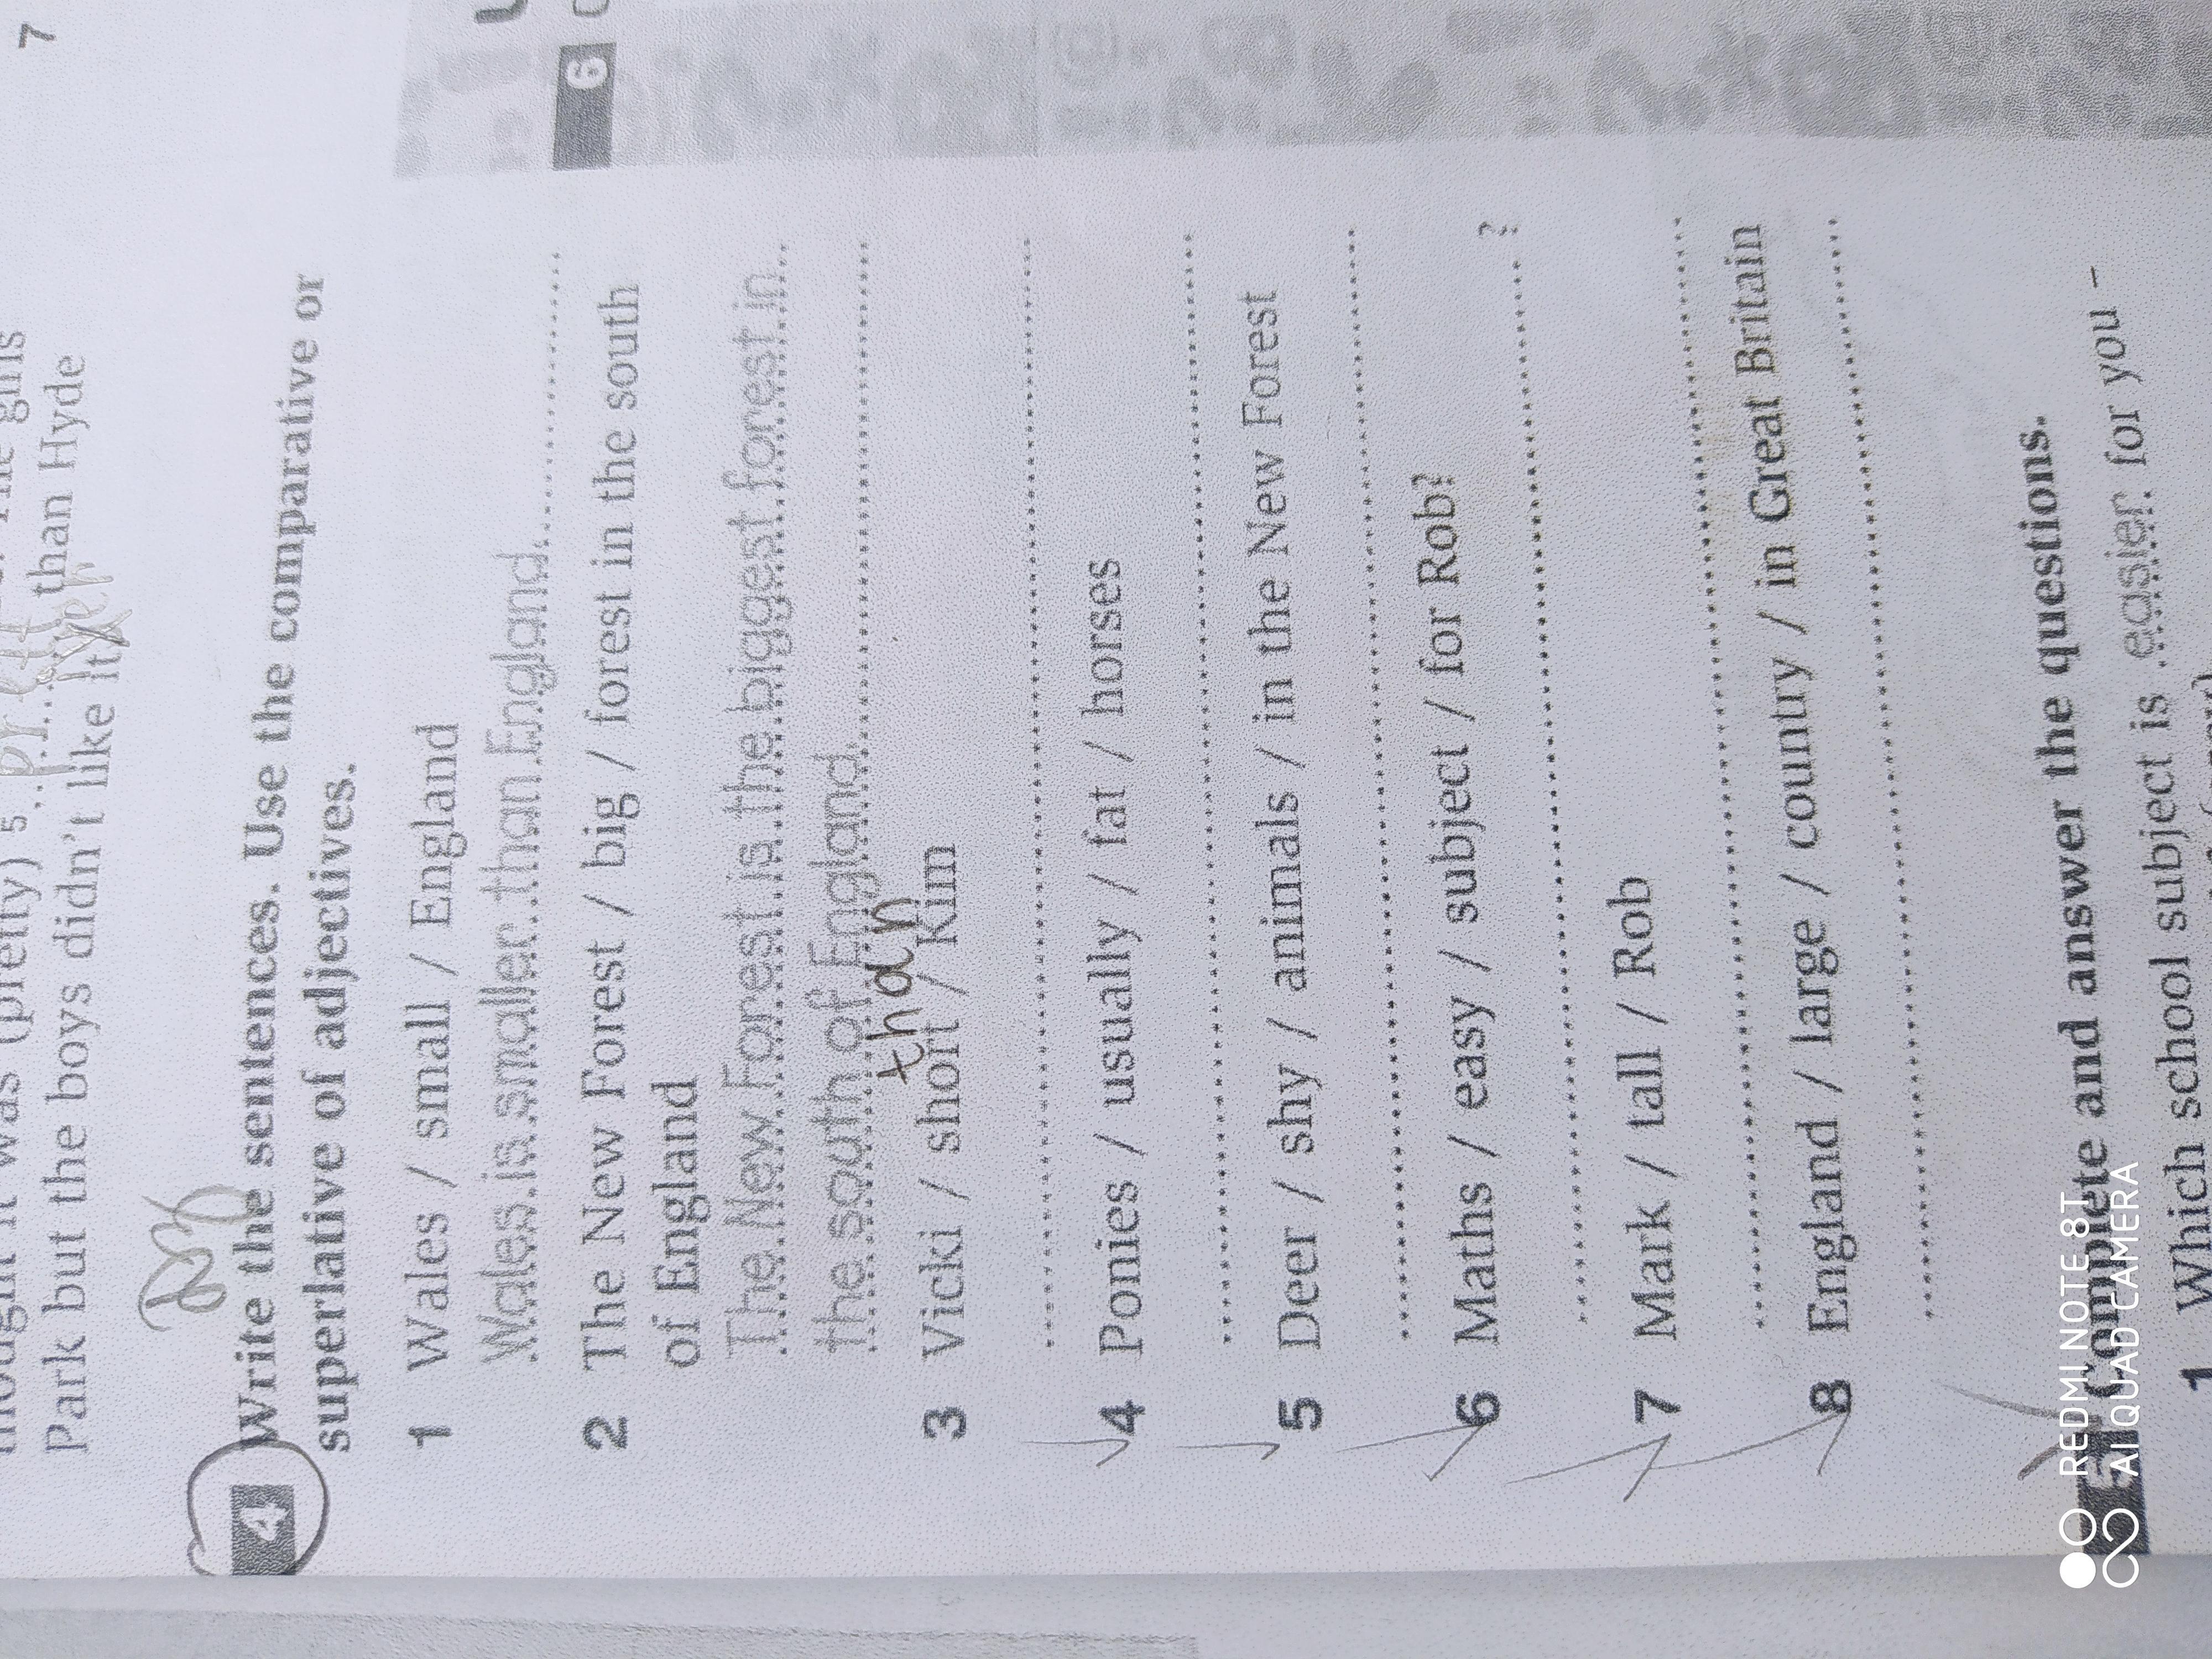 7
than Hyde
Park but the boys didn't like it.
4 Write the sentences. Use the comparative or
superlative of adjectives.
1 Wales / small / England
Wales is smaller than England.
2 The New Forest / big / forest in the south
of England
The New Forest is the biggest forest in
the south of England.
than
3 Vicki / short / Kim
4 Ponies / usually / fat / horses
5 Deer / shy / animals / in the New Forest
6 Maths / easy / subject / for Rob?
?
7 Mark / tall / Rob
8 England / large / country / in Great Britain
5 Complete and answer the questions.
1 Which school subject is easier for you –
6
REDMI NOTE 8T
AI QUAD CAMERA